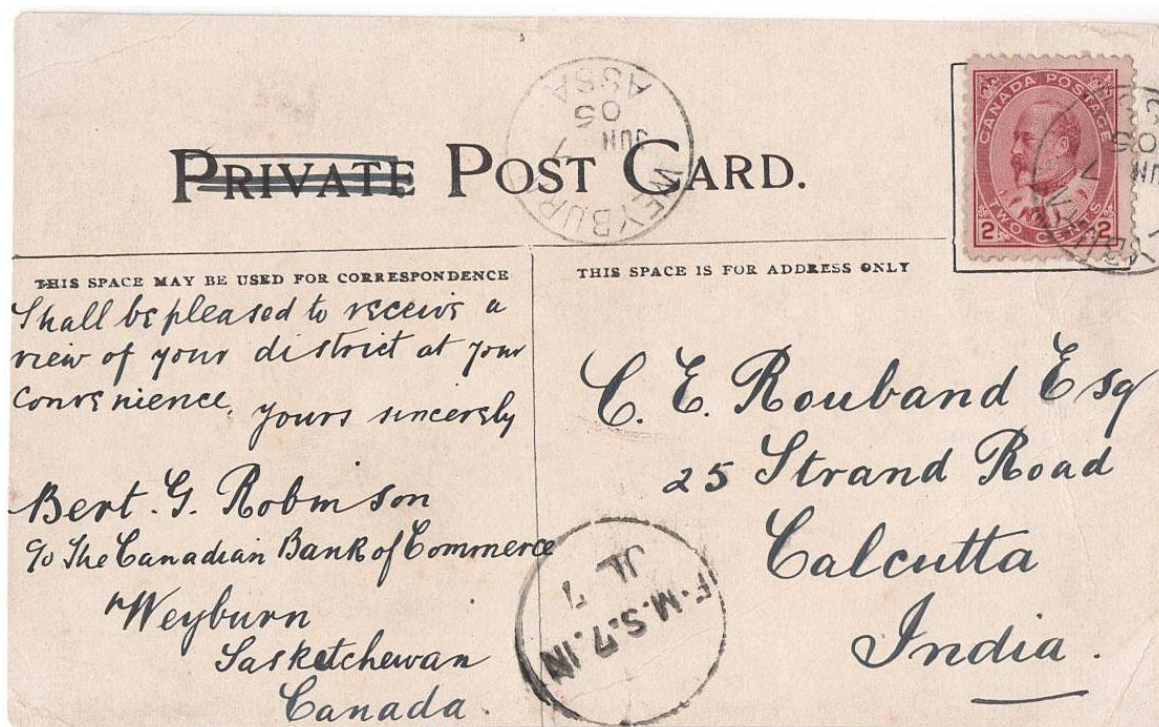 PRIVATE POST CARD.
WEYBURN
JUN 7
05
ASSA
CANADA POSTAGE
2 TWO CENTS 2
THIS SPACE MAY BE USED FOR CORRESPONDENCE
Shall be pleased to receive a
view of your district at your
convenience.
yours sincerely
Bert. G. Robinson
c/o The Canadian Bank of Commerce
Weyburn
Sasketchewan
Canada.
THIS SPACE IS FOR ADDRESS ONLY
C. E. Rouband Esq
25 Strand Road
Calcutta
India.
F.M.S.7.IN
JL 7